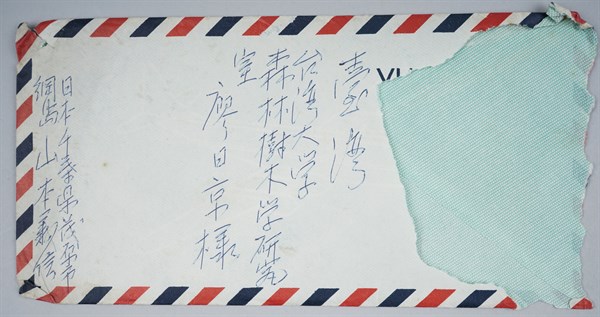 臺湾
台湾大学
森林樹木学研究
室
廖日京様
日本千葉県茂原市
綱島 山本義信